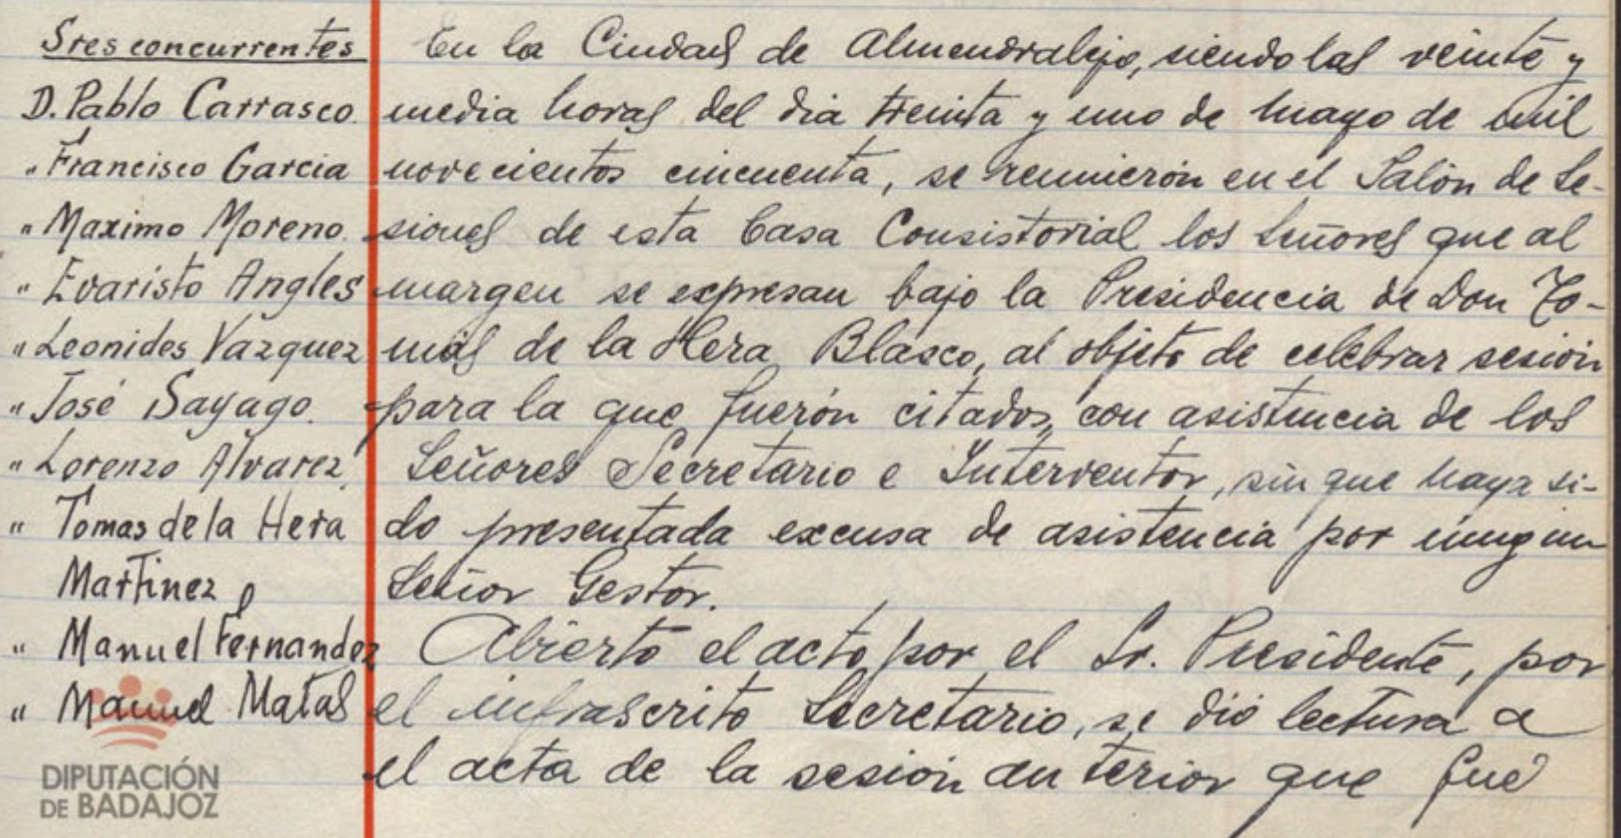 Sres concurrentes
D. Pablo Carrasco.
" Francisco Garcia
" Maximo Moreno.
" Evaristo Angles
" Leonides Vazquez
" José Sayago.
" Lorenzo Alvarez.
" Tomas de la Hera
Martinez
" Manuel Fernandez
" Manuel Matas
En la Ciudad de Almendralejo, siendo las veinte y
media horas del dia treinta y uno de mayo de mil
novecientos cincuenta, se reunierón en el Salón de Se-
siones de esta Casa Consistorial los Señores que al
margen se expresan bajo la Presidencia de Don To-
más de la Hera Blasco, al objeto de celebrar sesión
para la que fuerón citados, con asistencia de los
Señores Secretario e Interventor, sin que haya si-
do presentada excusa de asistencia por ningun
Señor Gestor.
Abierto el acto por el Sr. Presidente, por
el infrascrito Secretario, se dió lectura a
el acta de la sesión anterior que fué
DIPUTACIÓN
DE BADAJOZ